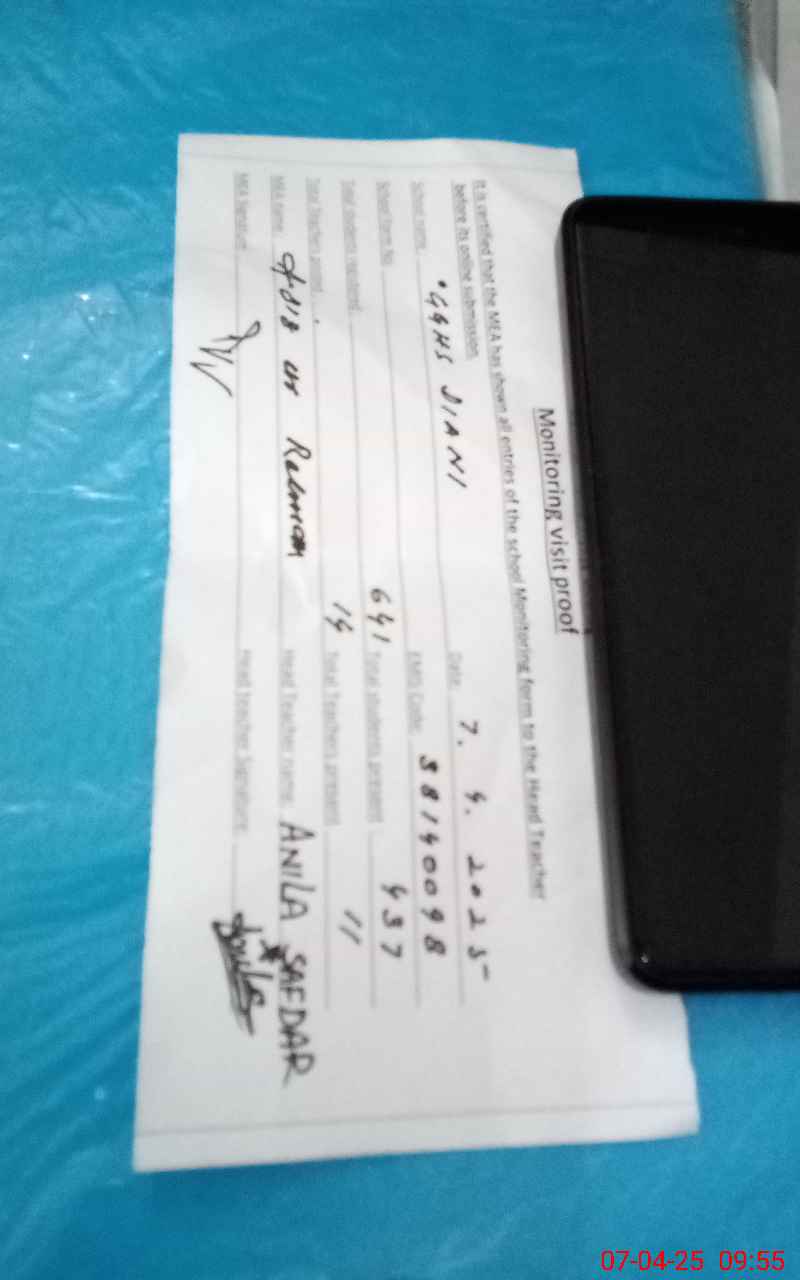 Monitoring visit proof
It is certified that the MEA has shown all entries of the school Monitoring form to the Head Teacher
before its online submission
School name GGHS SIANI Date 7. 4. 2025
School form No EMIS Code 38140098
Total students enrolled 641 Total students present 437
Total Teachers posted 14 Total Teachers present 11
MEA name ur Rehman Head Teacher name ANILA SAFDAR
MEA Signature Head Teacher Signature
07-04-25 09:55